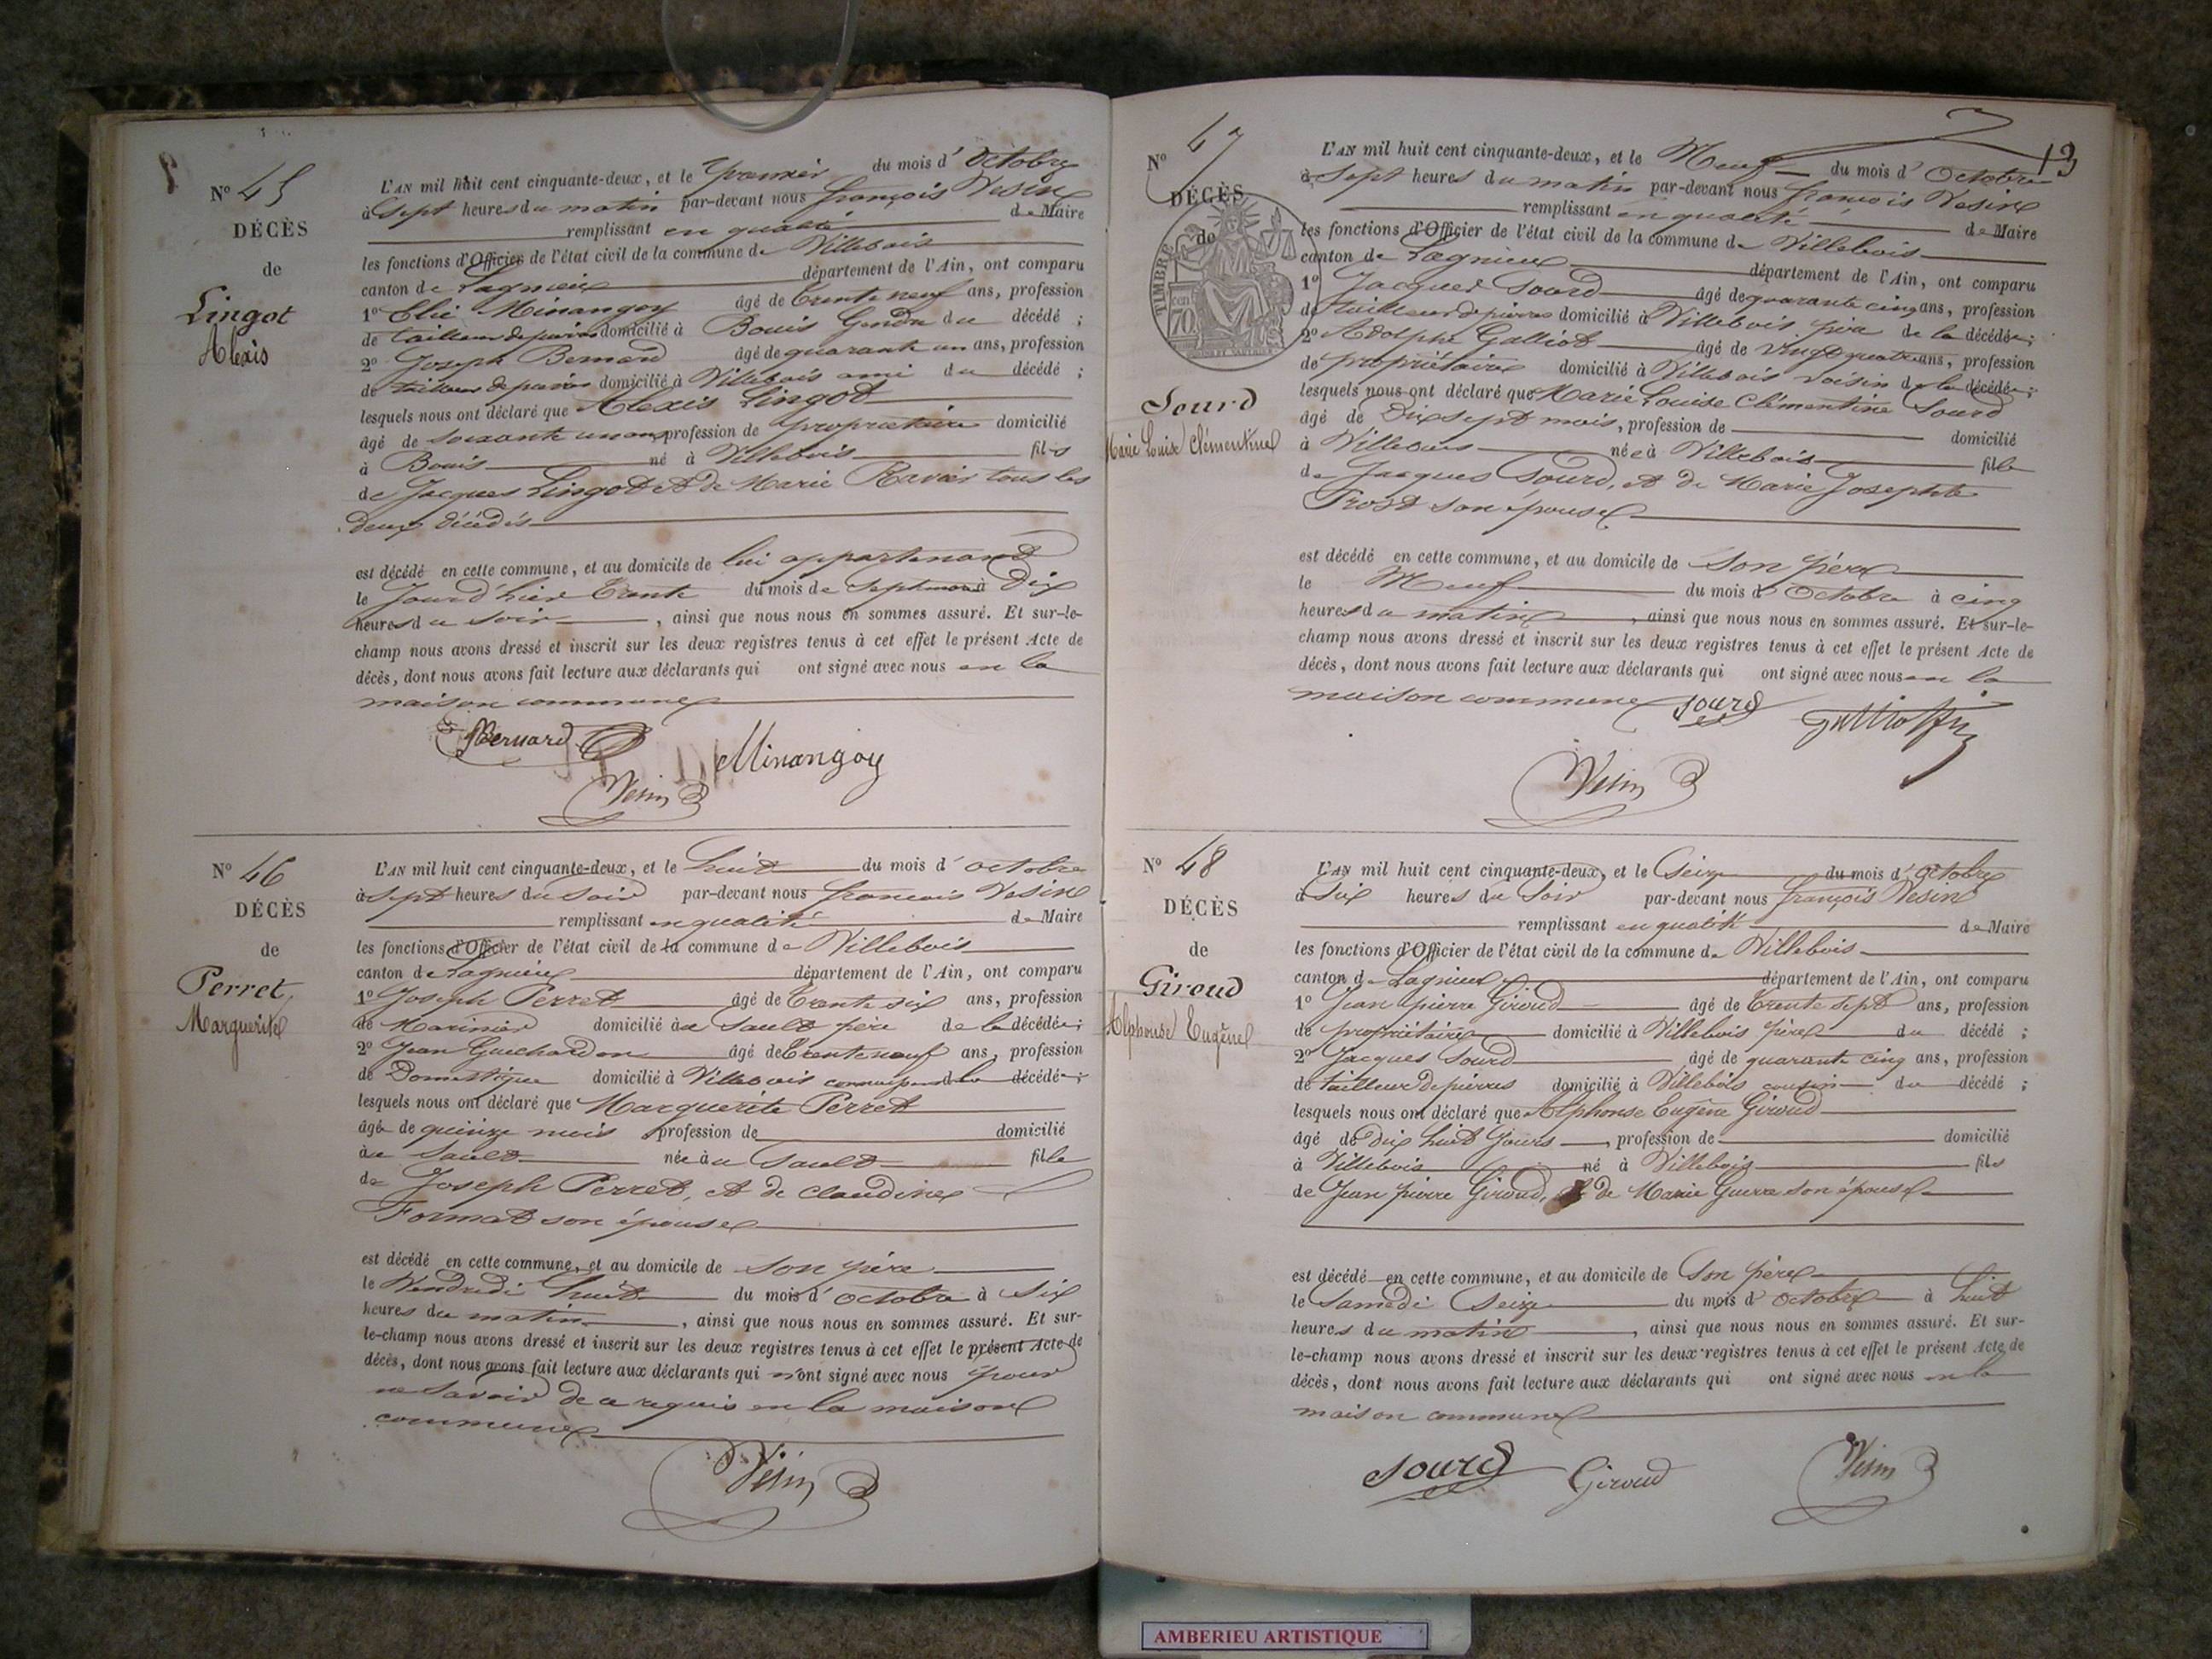 N° 45
DÉCÈS
de
Lingot
Alexis
L'AN mil huit cent cinquante-deux, et le premier du mois d'Octobre
à Sept heures du matin par-devant nous françois Vesin
remplissant en qualité de Maire
les fonctions d'Officier de l'état civil de la commune de Villebois
canton de Lagnieu département de l'Ain, ont comparu
1° Elie Minangoy âgé de trente neuf ans, profession
de tailleur de pierres domicilié à Bouis Gendre du décédé ;
2° Joseph Bernard âgé de quarante un ans, profession
de tailleur de pierres domicilié à Villebois ami du décédé ;
lesquels nous ont déclaré que Alexis Lingot
âgé de soixante un ans profession de propriétaire domicilié
à Bouis né à Villebois fils
de Jacques Lingot et de Marie Ravier tous les
deux décédés
est décédé en cette commune, et au domicile de lui appartenant
le Jour d'hier trente du mois de Septembre à Dix
heures du soir , ainsi que nous nous en sommes assuré. Et sur-le-
champ nous avons dressé et inscrit sur les deux registres tenus à cet effet le présent Acte de
décès, dont nous avons fait lecture aux déclarants qui ont signé avec nous en la
maison commune
Bernard
Minangoy
Vesin
N° 46
DÉCÈS
de
Perret
Marguerite
L'AN mil huit cent cinquante-deux, et le huit du mois d'octobre
à sept heures du soir par-devant nous françois Vesin
remplissant en qualité de Maire
les fonctions d'Officier de l'état civil de la commune de Villebois
canton de Lagnieu département de l'Ain, ont comparu
1° Joseph Perret âgé de trente six ans, profession
de Marinier domicilié au Sault père de la décédée ;
2° Jean Guichardon âgé de trente neuf ans, profession
de Domestique domicilié à Villebois de la décédée ;
lesquels nous ont déclaré que Marguerite Perret
âgé de quinze mois profession de domicilié
au Sault née au Sault fille
de Joseph Perret, et de Claudine
Format son épouse
est décédé en cette commune, et au domicile de son père
le Vendredi huit du mois d'octobre à six
heures du matin , ainsi que nous nous en sommes assuré. Et sur-
le-champ nous avons dressé et inscrit sur les deux registres tenus à cet effet le présent Acte de
décès, dont nous avons fait lecture aux déclarants qui n'ont signé avec nous pour
ne savoir de ce requis en la maison
commune
Vesin
13
N° 47
DÉCÈS
de
TIMBRE
70
Sourd
Marie Louise Clémentine
L'AN mil huit cent cinquante-deux, et le Neuf du mois d'Octobre
à Sept heures du matin par-devant nous françois Vesin
remplissant en qualité de Maire
les fonctions d'Officier de l'état civil de la commune de Villebois
canton de Lagnieu département de l'Ain, ont comparu
1° Jacques Sourd âgé de quarante cinq ans, profession
de tailleur de pierres domicilié à Villebois père de la décédée ;
2° Adolphe Galliot âgé de vingt quatre ans, profession
de propriétaire domicilié à Villebois voisin de la décédée ;
lesquels nous ont déclaré que Marie Louise Clémentine Sourd
âgé de Dix sept mois, profession de domicilié
à Villebois née à Villebois fille
de Jacques Sourd, et de Marie Josephte
Prost son épouse
est décédé en cette commune, et au domicile de son père
le Neuf du mois d'Octobre à cinq
heures du matin , ainsi que nous nous en sommes assuré. Et sur-le-
champ nous avons dressé et inscrit sur les deux registres tenus à cet effet le présent Acte de
décès, dont nous avons fait lecture aux déclarants qui ont signé avec nous en la
maison commune
Sourd
Vesin
N° 48
DÉCÈS
de
Giroud
Alphonse Eugène
L'AN mil huit cent cinquante-deux, et le Seize du mois d'Octobre
à Six heures du Soir par-devant nous françois Vesin
remplissant en qualité de Maire
les fonctions d'Officier de l'état civil de la commune de Villebois
canton de Lagnieu département de l'Ain, ont comparu
1° Jean pierre Giroud âgé de trente sept ans, profession
de propriétaire domicilié à Villebois père du décédé ;
2° Jacques Sourd âgé de quarante cinq ans, profession
de tailleur de pierres domicilié à Villebois cousin du décédé ;
lesquels nous ont déclaré que Alphonse Eugène Giroud
âgé de dix huit Jours , profession de domicilié
à Villebois né à Villebois fils
de Jean pierre Giroud, et de Marie Guerre son épouse
est décédé en cette commune, et au domicile de Son père
le Samedi Seize du mois d'octobre à huit
heures du matin , ainsi que nous nous en sommes assuré. Et sur-
le-champ nous avons dressé et inscrit sur les deux registres tenus à cet effet le présent Acte de
décès, dont nous avons fait lecture aux déclarants qui ont signé avec nous en la
maison commune
Sourd
Giroud
Vesin
AMBERIEU ARTISTIQUE